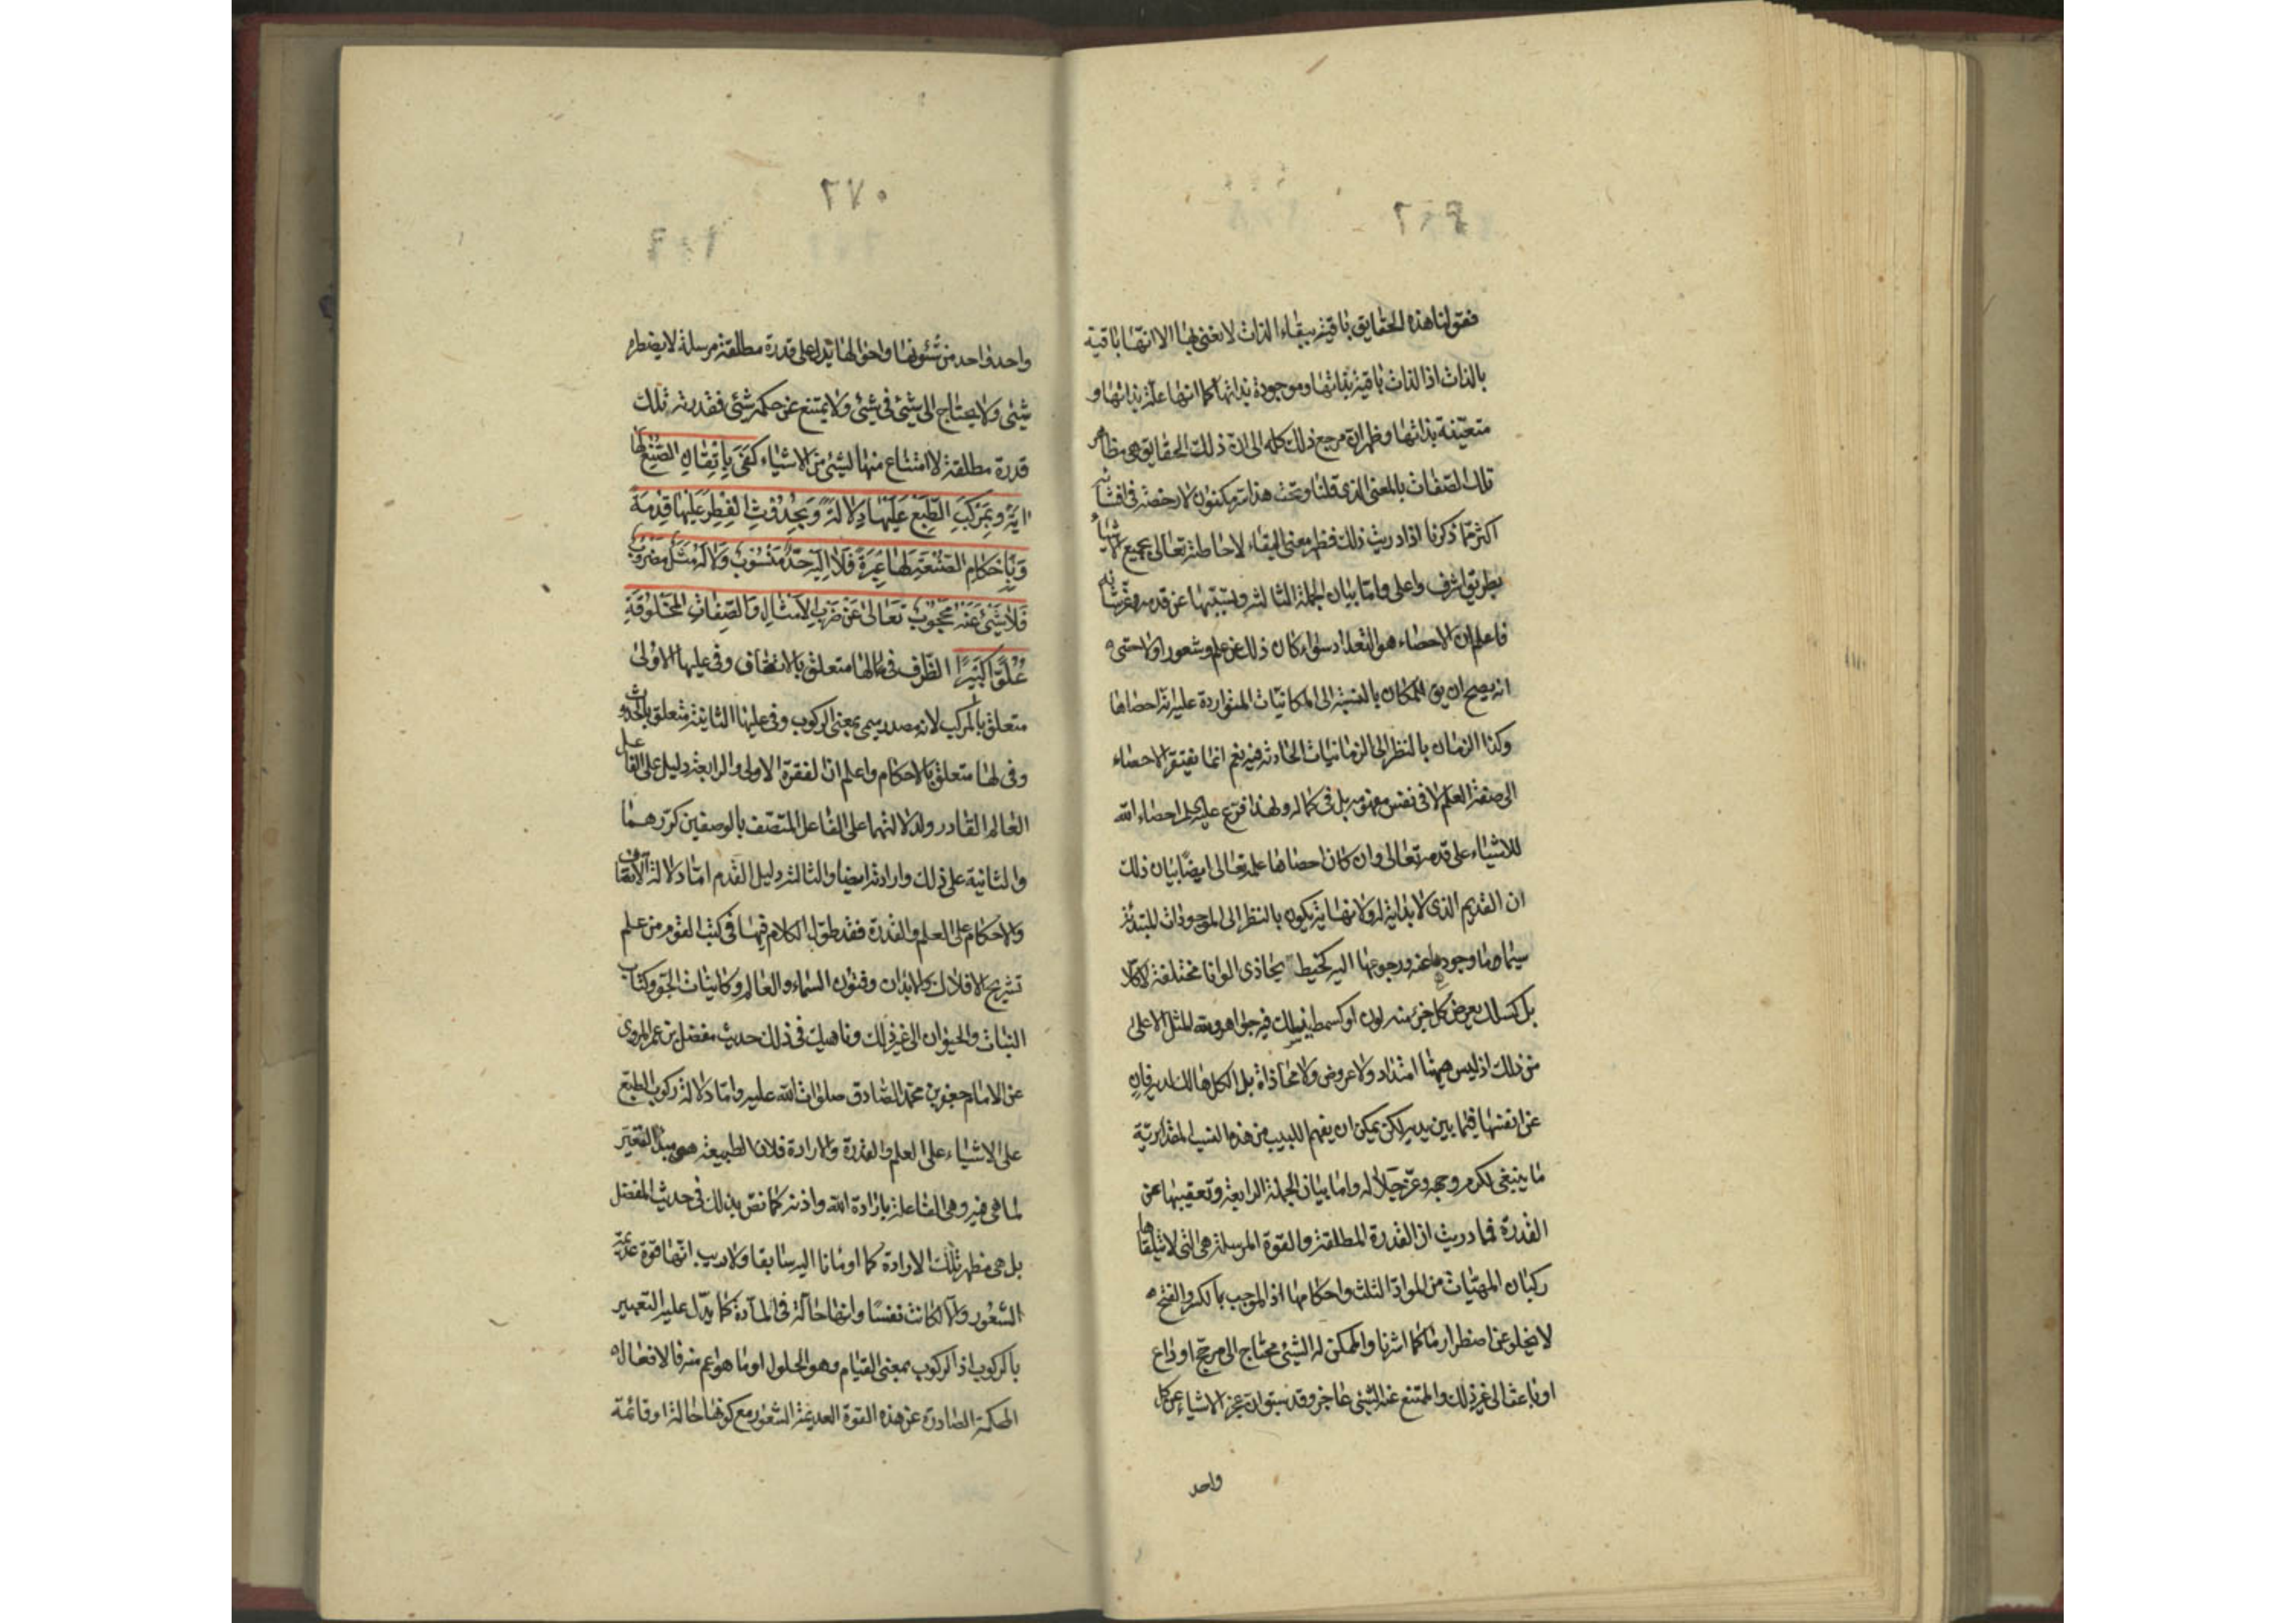 فقولنا هذه الحقايق باقية ببقاء الذات لا نعنى بها الا انها باقية
بالذات اذ الذات باقية بذاتها وموجودة بذاتها كما انها علة بذاتها و
متعينة بذاتها وظهر ان مرجع ذلك كله الى ان ذلك الحقايق هى مظاهر
تلك الصفات بالمعنى الذى قلنا وتحت هذا سر مكنون لا رخصة فى افشائه
اكثر مما ذكرنا اذا دريت ذلك فظهر معنى البقاء لاحاطته تعالى بجميع الاشياء
بطريق اشرف واعلى واما بيان الجملة الثالثة وتسببها عن قدمه عز شانه
فاعلم ان الاحصاء هو التعداد سواء كان ذلك عن علم وشعور اولا حتى
انه يصح ان يق المكان بالنسبة الى المكانيات المتواردة عليه انه احصاها
وكذا الزمان بالنظر الى الزمانيات الحادثة فيه نعم انما يفتقر الاحصاء
الى صفة العلم لا فى نفس مفهومه بل فى كماله ولهذا فرع عليه احصاء الله
للاشياء على قدمه تعالى وان كان احصاها علمه تعالى ايضا بيان ذلك
ان القديم الذى لا بداية له ولا نهاية يكون بالنظر الى الموجودات المبتدئة
سيما وما وجودها عنه ورجوعها اليه كخيط يحاذى الوانا مختلفة لا كلا
بل كسلك يعرض كل جزء منه لون او كسمط ينسلك فيه جواهر ولله المثل الاعلى
من ذلك اذ ليس هيهنا امتداد ولا عروض ولا محاذاة بل الكل هالك لديه فان
عن انفسها فيما بين يديه لكن يمكن ان يفهم اللبيب من هذه النسب المقدارية
ما ينبغى لكرم وجهه وعز جلاله واما بيان الجملة الرابعة وتعقيبها عن
القدرة فما دريت ان القدرة المطلقة والقوة المرسلة هى التى لا تتلقاها
ركبان المهيات من المواد الثلث واحكامها اذ الموجب بالكسر والفتح
لا يخلو عن اضطرار ما كما اشرنا والممكن له الشىء محتاج الى مرجح او داع
او باعث الى غير ذلك والممتنع عنه الشىء عاجز وقد سبق ان عجز الاشياء عن كل
واحد
٢٧٠
واحد واحد من شئونها واحوالها يدل على قدرة مطلقة مرسلة لا يضطره
شىء ولا يحتاج الى شىء فى شىء ولا يمتنع عن حكمه شىء فقدرته تلك
قدرة مطلقة لا امتناع منها لشىء من الاشياء كَفَى بِاِتْقَانِ الصُّنْعِ لَهَا
اٰيَةً وَبِمَرْكَبِ الطَّبْعِ عَلَيْهَا دِلَالَةً وَبِحُدُوثِ الْفِطَرِ عَلَيْهَا قِدْمَةً
وَبِاَحْكَامِ الصَّنْعَةِ لَهَا عِبْرَةً فَلَا اِلَيْهِ حَدٌّ مَنْسُوبٌ وَلَا لَهُ مَثَلٌ مَضْرُوبٌ
فَلَا شَىْءٌ عَنْهُ مَحْجُوبٌ تَعَالَى عَنْ ضَرْبِ الْاَمْثَالِ وَالصِّفَاتِ الْمَخْلُوقَةِ
عُلُوًّا كَبِيرًا الظرف فى لها متعلق بالاتصاف وفى عليها الاولى
متعلق بالمركب لانه مصدر ميمى بمعنى الركوب وفى عليها الثانية متعلق بالحدوث
وفى لها متعلق بالاحكام واعلم ان الفقرة الاولى والرابعة دليل على الفاعل
العالم القادر ولدلالتهما على الفاعل المتصف بالوصفين كررهما
والثانية على ذلك وارادته ايضا والثالثة دليل القدم اما دلالة الاتقان
والاحكام على العلم والقدرة فقد طول الكلام فيها فى كتب القوم من علم
تشريح الافلاك والابدان وفنون السماء والعالم وكائنات الجو وكتاب
النبات والحيوان الى غير ذلك وناهيك فى ذلك حديث مفضل بن عمر المروى
عن الامام جعفر بن محمد الصادق صلوات الله عليه واما دلالة ركوب الطبع
على الاشياء على العلم والقدرة والارادة فلان الطبيعة هى مبدا التغير
لما هى فيه وهى الفاعلة بارادة الله واذنه كما نص بذلك فى حديث المفضل
بل هى مظهر تلك الارادة كما اومانا اليه سابقا ولا ريب انها قوة عديمة
الشعور والا لكانت نفسا وانها حالة فى المادة كما يدل عليه التعبير
بالركوب اذ الركوب بمعنى القيام وهو الحلول او ما هو اعم منه فالافعال
الحكمة الصادرة عن هذه القوة العديمة الشعور مع كونها حالة او قائمة